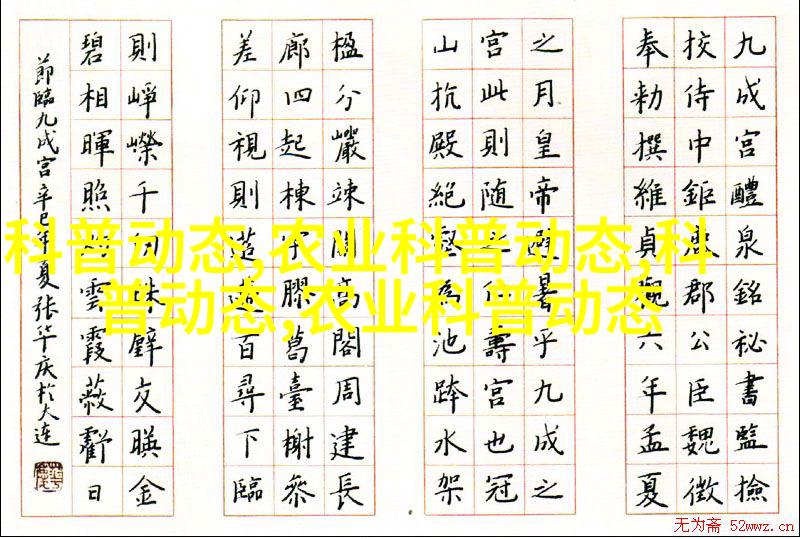 九成宮醴泉銘祕書監撿
挍侍中鉅鹿郡公臣魏徵
奉勑撰維貞觀六年孟夏
之月皇帝避暑乎九成之
宮此則随之仁壽宮也冠
山抗殿絕壑為池跨水架
楹分巖竦闕高閣周建長
廊四起棟宇膠葛臺榭叅
差仰視則迢遰百尋下臨
則崢嶸千仞珠璧交暎金
碧相暉照灼雲霞蔽虧日
節臨九成宮辛巳年夏张华庆於大连
科普动态,农业科普动态,科
普动态,农业科普动态
无为斋 52wwz.cn